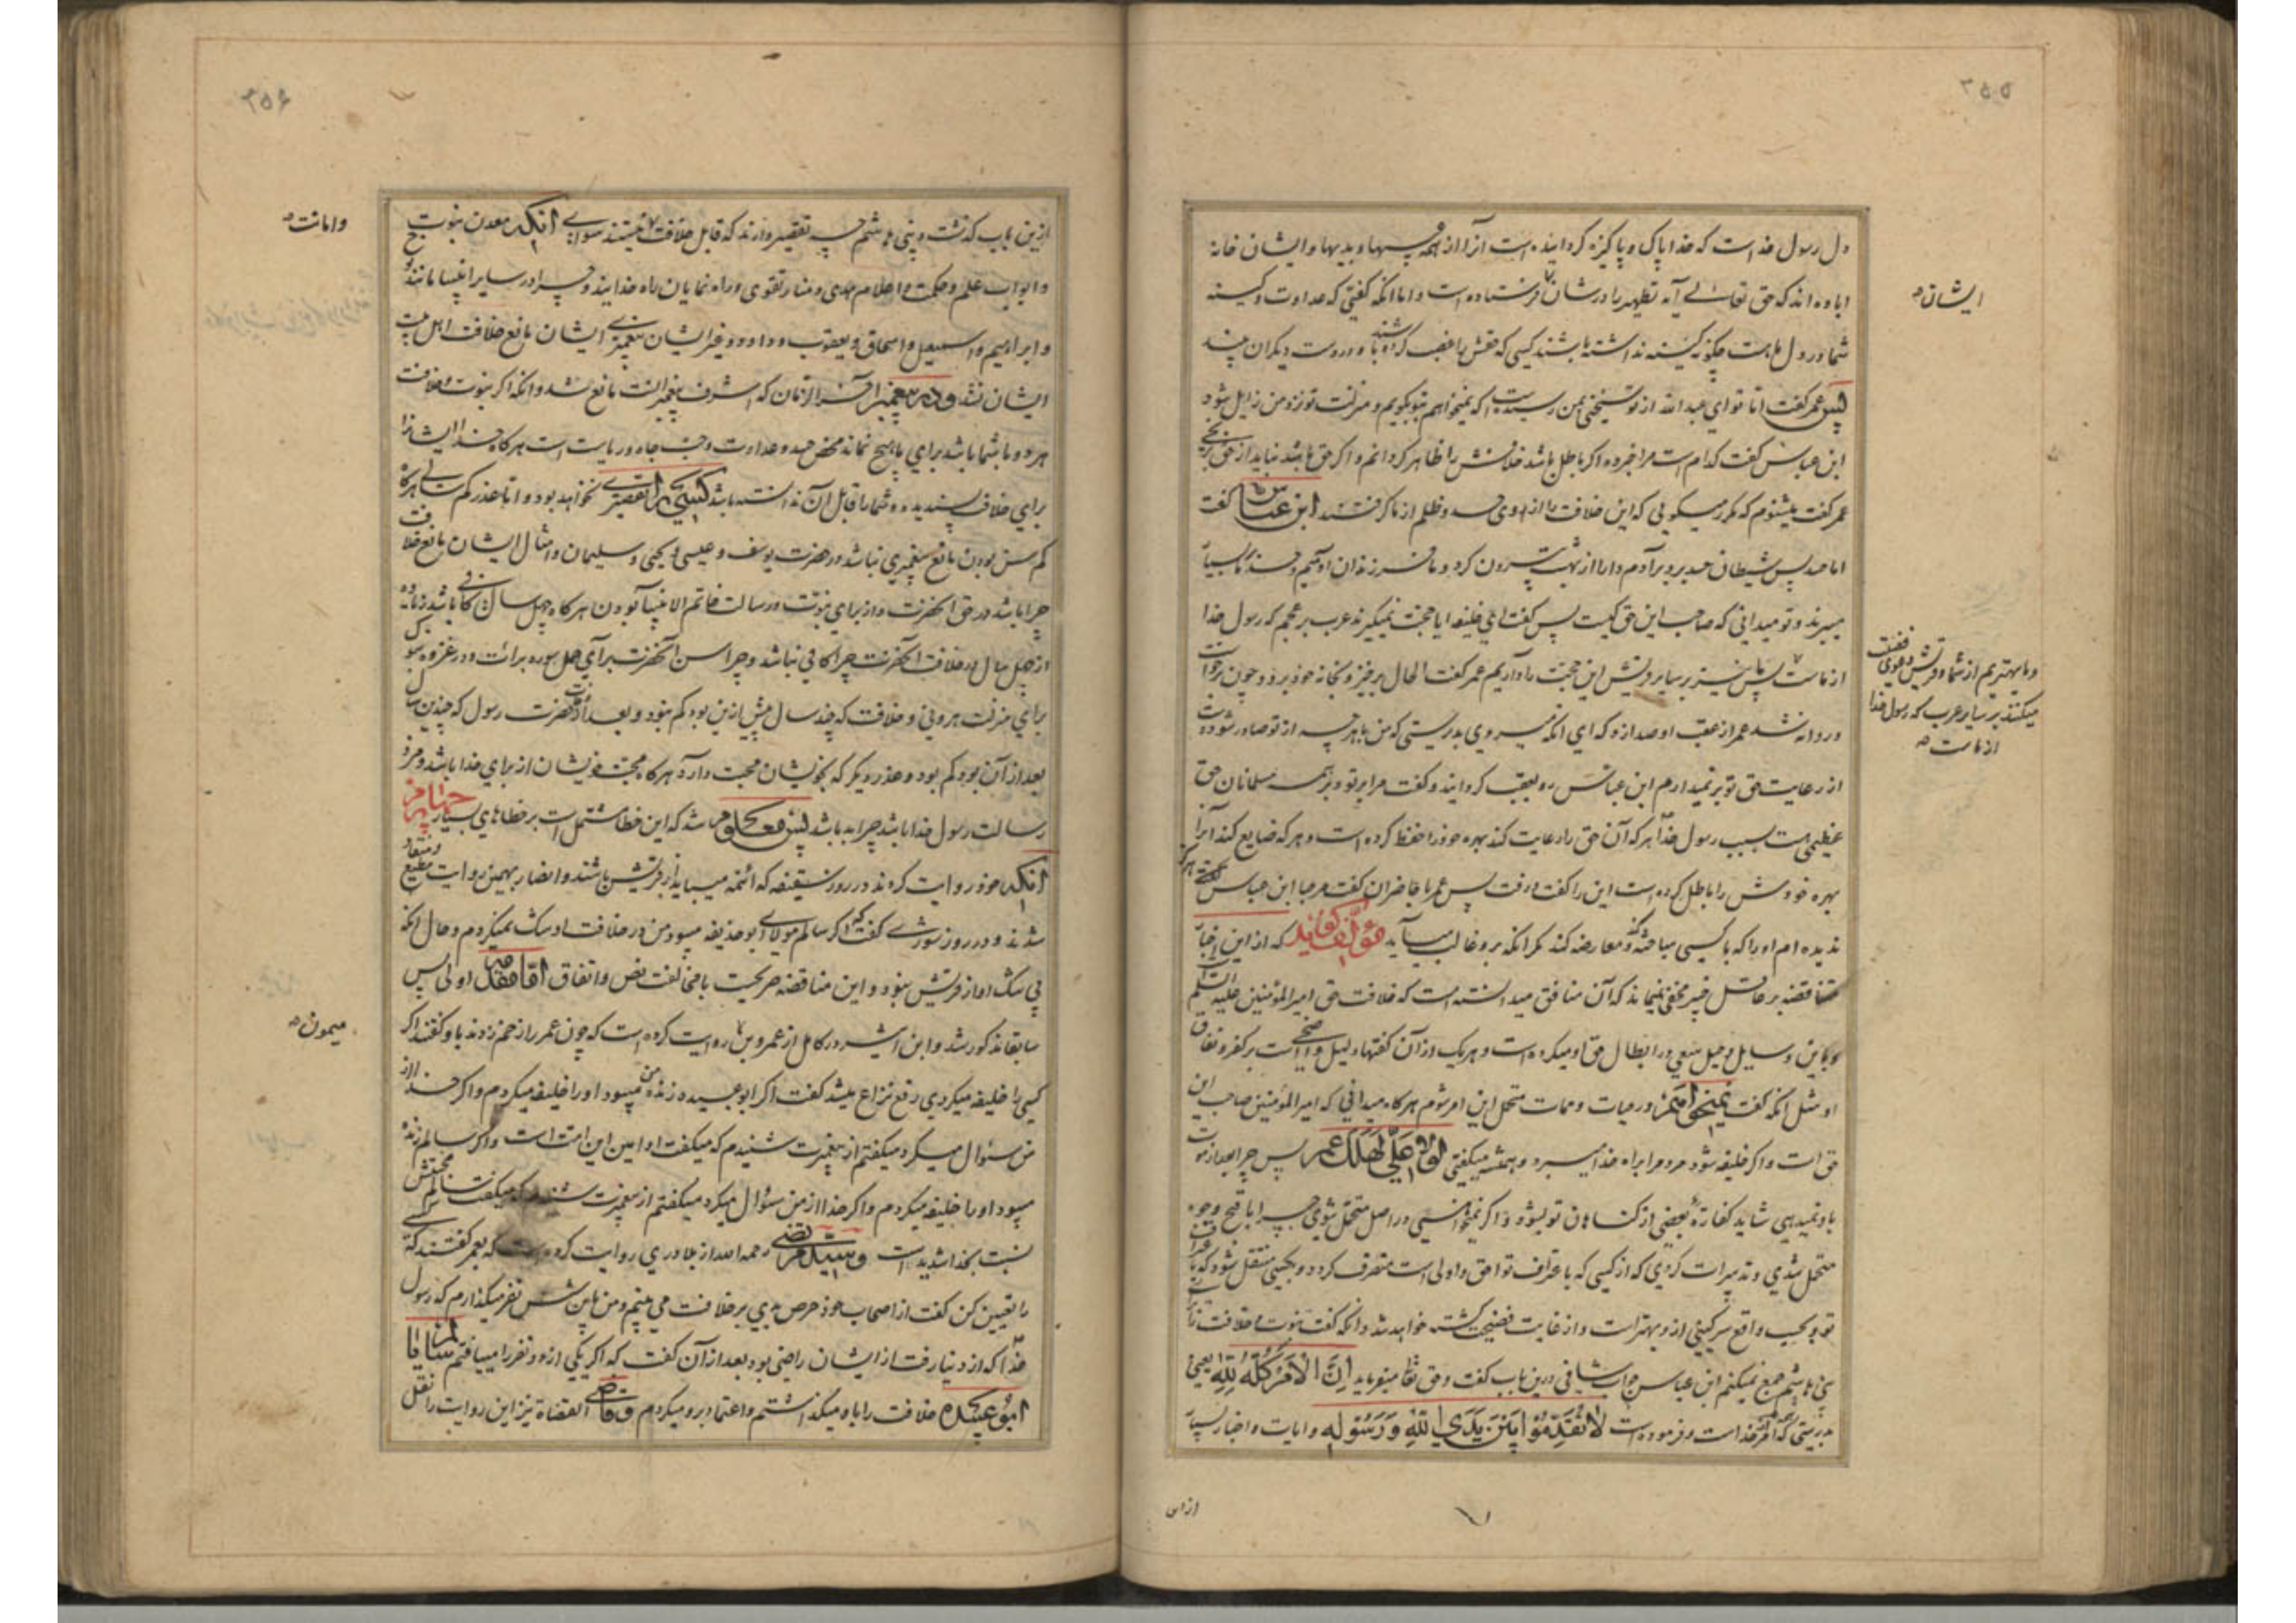 ۳۵۵
دل رسول خداست که خدا پاک و پاکیزه گردانیده است آنرا از همه و بدیها و ایشان خانه
اباده اند که حق تعالی آیه تطهیر را در شان فرستاده است و اما انکه گفتی که عداوت و کینه
ایشان
شما در دل ماست چگونه کینه نداشته باشند کسی که حقش را غصب کرده باشند و در دست دیگران بیند
پس عمر گفت اما تو ای عبد الله از تو سخنی بمن رسیده است که نمیخواهم بتو بگویم و منزلت تو نزد من زایل شود
ابن عباس گفت کدام است مرا خبر ده اگر باطل باشد خلافش را ظاهر گردانم و اگر حق باشد نباید از حق
عمر گفت میشنوم که مکرر میگویی که این خلافت را از روی حسد و ظلم از ما گرفتند ابن عباس گفت
اما حسد پس شیطان حسد برد بر آدم و او را از بهشت بیرون کرد و ما فرزندان آدمیم و حسد بر ما بسیار
میبرند و تو میدانی که صاحب این حق کیست پس گفت ای خلیفه ایا حجت نمیگیرند عرب بر عجم که رسول خدا
و ما بهتریم از شما و قریش دعوی فضیلت
میکنند بر سایر عرب که رسول خدا
از ماست
از ماست پس ما نیز بر سایر قریش این حجت را داریم عمر گفت الحال برخیز و بخانه خود برو و چون برخواست
و روانه شد عمر از عقب او صدا زد که ای انکه میروی بدرستی که من با هرچه از تو صادر شود دست
از رعایت حق تو بر نمیدارم ابن عباس رو بعقب گردانید و گفت مرا بر تو و بر همه مسلمانان حق
عظیمی هست بسبب رسول خدا هر که آن حق را رعایت کند بهره خود را حفظ کرده است و هر که ضایع کند آنرا
بهره خودش را باطل کرده است این را گفت و رفت پس عمر با حاضران گفت مرحبا ابن عباس هرگز
ندیده ام او را که با کسی مباحثه و معارضه کند مگر انکه برو غالب میآید مؤلف گوید که از این اخبار
متناقضه بر عاقل خبیر مخفی نمیماند که آن منافق میدانسته است که خلافت حق امیر المؤمنین علیه السلم
و باین وسایل و حیل سعی در ابطال حق او میکرده است و هر یک از آن گفتها دلیل واضحی است بر کفر و نفاق
او مثل انکه گفت نمیخواهم در حیات و ممات متحمل این امر شوم هر گاه میدانی که امیر المؤمنین صاحب این
حق است و اگر خلیفه شود مردم را براه خدا میبرد و همیشه میگفتی لولا علی لهلک عمر پس چرا بعد از موت
باو نمیدهی شاید کفاره بعضی از گناهان تو بشود و اگر نمیخواستی در اصل متحمل شوی چرا باقبح وجوه
متحمل شدی و تدبیرات کردی که از کسی که باعتراف تو احق و اولی است منصرف گردد و بکسی منتقل شود که
تو بحسب واقع سرگینی از و بهتر است و از غایت فضیحت کشته خواهد شد و انکه گفت نبوت و خلافت را
بنی هاشم جمع نمیکنم ابن عباس جواب شافی درین باب گفت و حق تعا میفرماید اِنَّ الْاَمْرَ کُلَّهُ لِلّٰهِ یعنی
بدرستی که امر خداست و فرموده است لَا تُقَدِّمُوا بَیْنَ یَدَیِ اللّٰهِ وَرَسُولِهِ و ایات و اخبار بسیار
از این
۳۵۶
از این باب گذشت و بنی هاشم چه تقصیر دارند که قابل خلافت نیستند سوای انکه معدن نبوت
و امانت
و ابواب علم و حکمت و اعلام هدی و منار تقوی و راه نمایان راه خدایند و چرا در سایر انبیا مانند نوح
و ابراهیم و اسمعیل و اسحاق و یعقوب و داود و غیر ایشان پیغمبری ایشان مانع خلافت اهل بیت
ایشان نشد و در پیغمبر آخر الزمان که اشرف پیغمبرانست مانع شد و انکه اگر نبوت و خلافت
هر دو با شما باشد برای ما هیچ نماند محض حسد و عداوت و حب جاه و ریاست است هر گاه خدا ایشانرا
برای خلافت پسندیده و شما را قابل آن ندانسته باشد کسی را تقصیری نخواهد بود و اما عذر کم سالی هر گاه
کم سن بودن مانع پیغمبری نباشد در حضرت یوسف و عیسی و یحیی و سلیمان و امثال ایشان مانع خلافت
چرا باشد در حق آنحضرت و از برای نبوت و رسالت خاتم الانبیا بودن هر گاه چهل سال کافی باشد زیاده
از چهل سال در خلافت آنحضرت چرا کافی نباشد و چرا سن آنحضرت برای حمل سوره برائت و در غزوه تبوک
برای منزلت هرونی و خلافت که چند سال پیش ازین بود کم نبود و بعد از وفات حضرت رسول که چندین سال
بعد از آن بود کم بود و عذر دیگر که بخویشان محبت دارد هر گاه محبت خویشان از برای خدا باشد و مزد
رسالت رسول خدا باشد چرا بد باشد پس معلوم شد که این خطا مشتمل است بر خطاهای بسیار چهارم
انکه خود روایت کردند در روز سقیفه که ائمه میباید از قریش باشند و انصار بهمین روایت مطیع و منقاد
شدند و در روز شوری گفت که اگر سالم مولای ابو حذیفه میبود من در خلافت او شک نمیکردم و حال انکه
بی شک او از قریش نبود و این مناقضه صریحست با مخالفت نص و اتفاق اما مقدمه اولی پس
سابقا مذکور شد و ابن اثیر در کامل از عمرو بن روایت کرده است که چون عمر را زخم زدند باو گفتند اگر
میمون
کسی را خلیفه میکردی رفع نزاع میشد گفت اگر ابو عبیده زنده میبود او را خلیفه میکردم و اگر خدا از
من سؤال میکرد میگفتم از پیغمبرت شنیدم که میگفت او امین این امت است و اگر سالم زنده
میبود او را خلیفه میکردم و اگر خدا از من سؤال میکرد میگفتم از پیغمبرت شنیدم که میگفت سالم محبتش
نسبت بخدا شدید است و سید مرتضی رحمه الله از بلاذری روایت کرده است که بعمر گفتند که کسی
را تعیین کن گفت از اصحاب خود حرص بدی بر خلافت می بینم و من باین شش نفر میگذارم که رسول
خدا که از دنیا رفت از ایشان راضی بود بعد از آن گفت که اگر یکی ازین دو نفر را مییافتم سالم یا
ابو عبیده خلافت را باو میگذاشتم و اعتماد برو میکردم و قاضی القضاة نیز این روایت را نقل